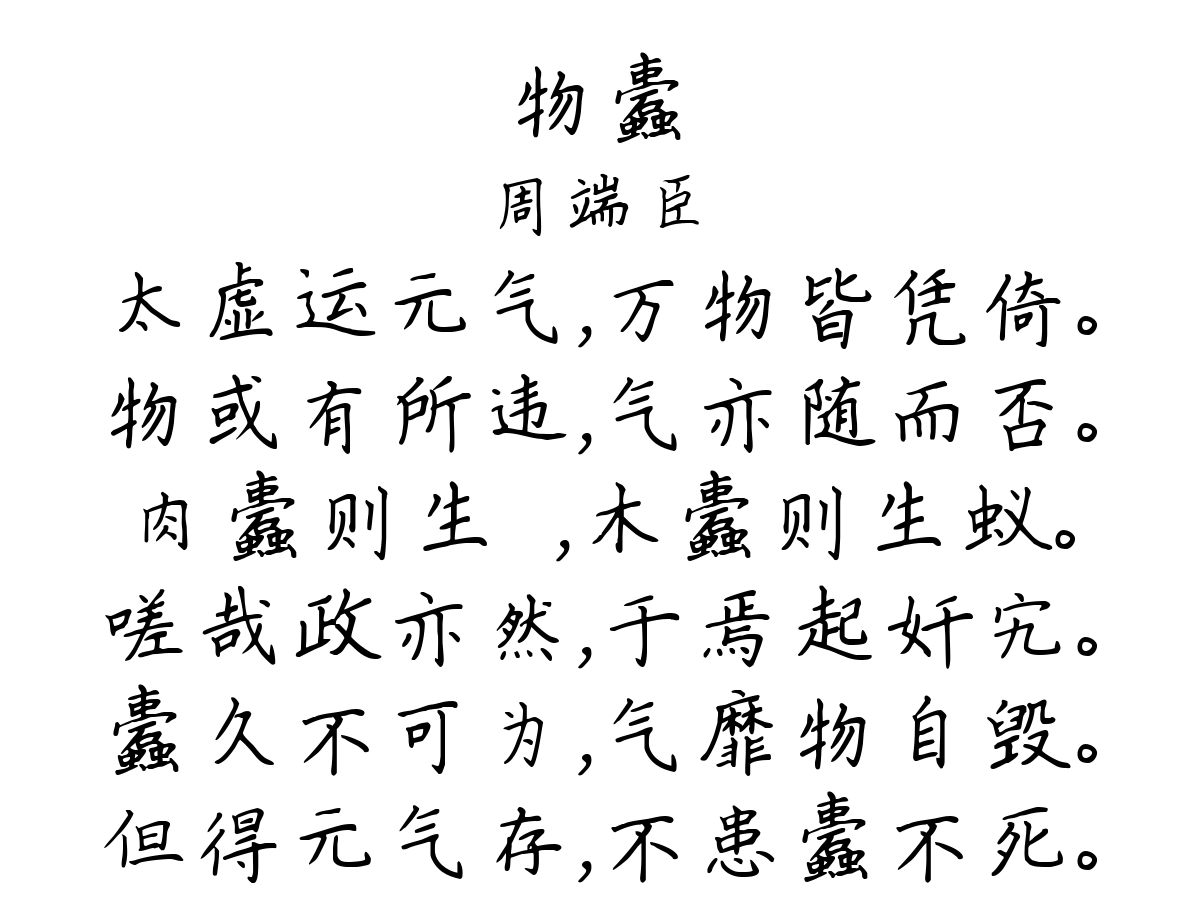 物蠹
周端臣
太虚运元气,万物皆凭倚。
物或有所违,气亦随而否。
肉蠹则生 ,木蠹则生蚁。
嗟哉政亦然,于焉起奸宄。
蠹久不可为,气靡物自毁。
但得元气存,不患蠹不死。